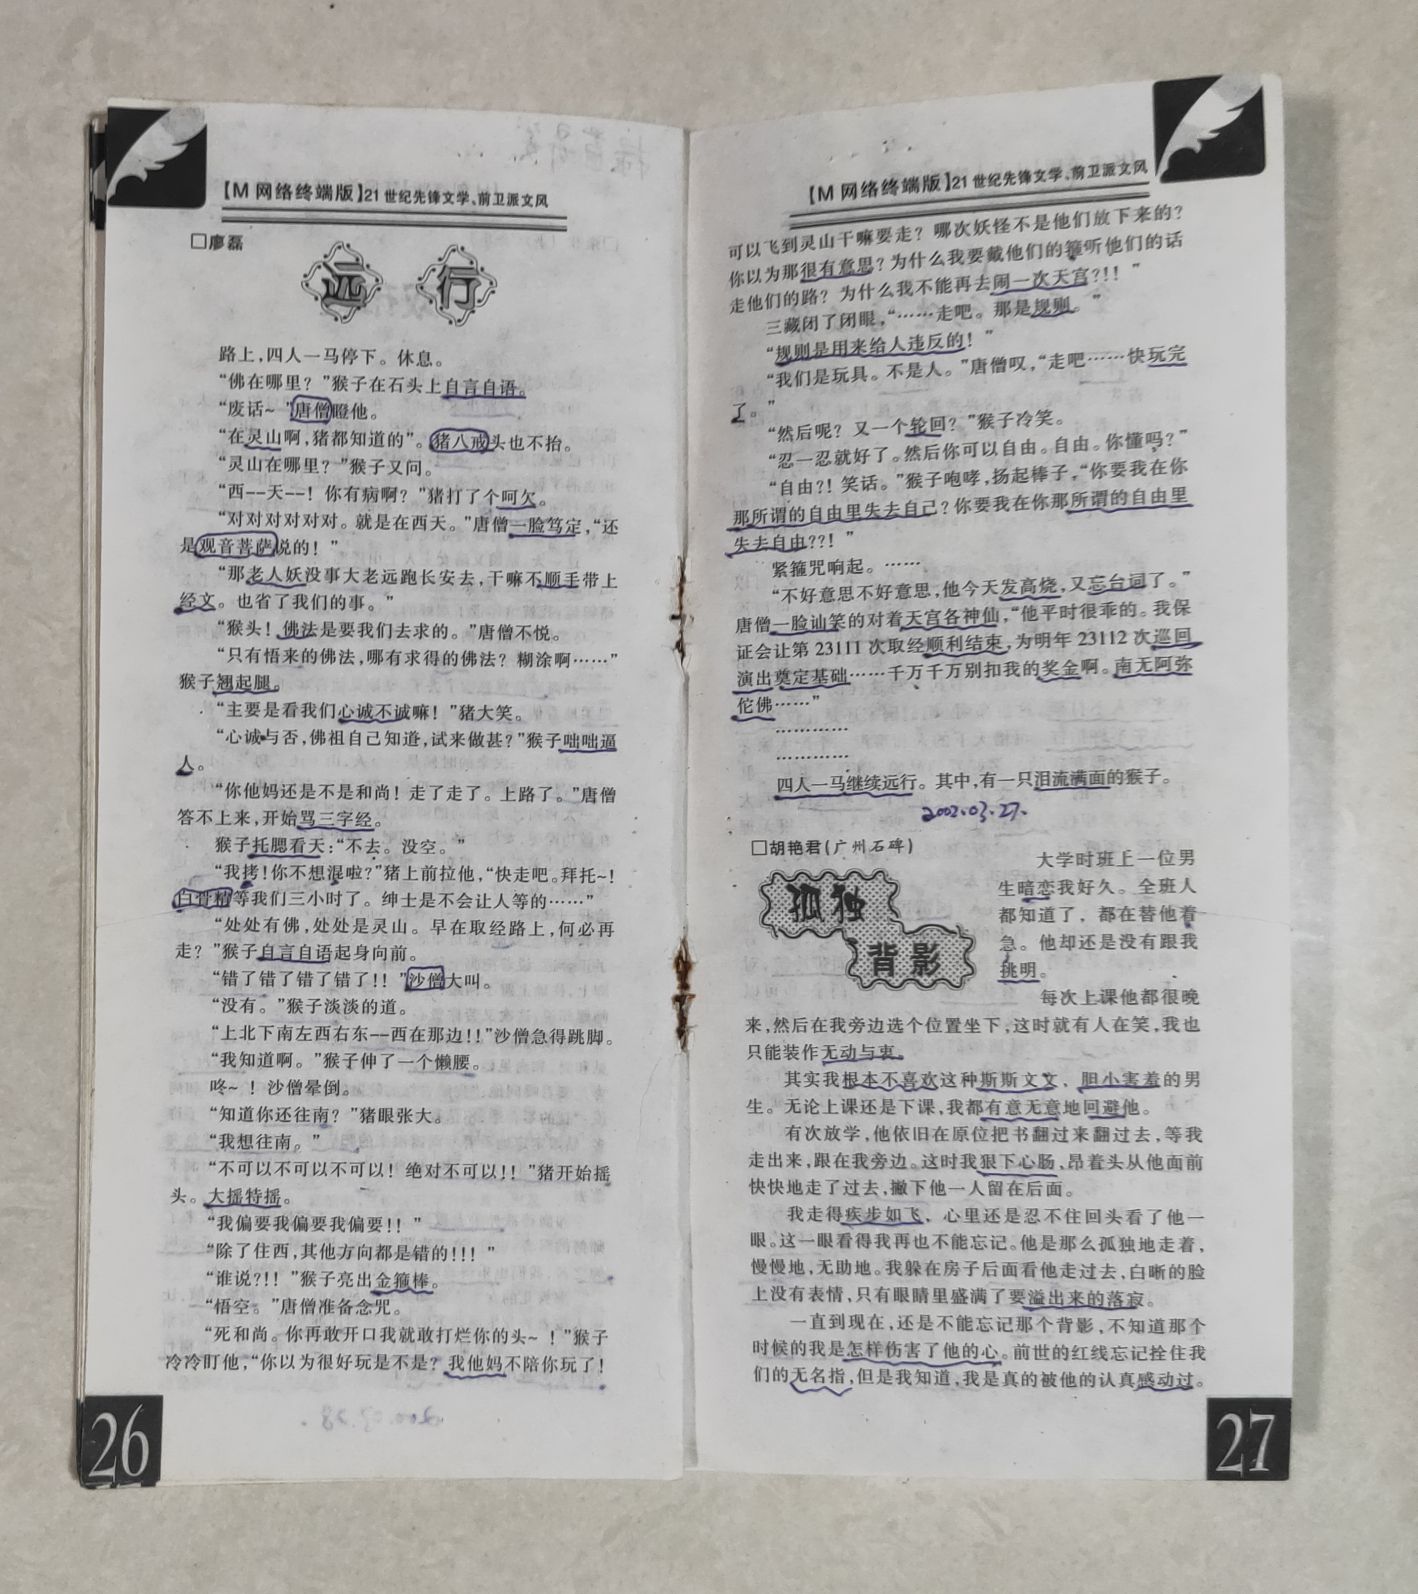 【M 网络终端版】21世纪先锋文学、前卫派文风
□廖磊
远行
路上,四人一马停下。休息。
“佛在哪里？”猴子在石头上自言自语。
“废话~ ”唐僧瞪他。
“在灵山啊,猪都知道的”。猪八戒头也不抬。
“灵山在哪里？”猴子又问。
“西--天--！你有病啊？”猪打了个呵欠。
“对对对对对对。就是在西天。”唐僧一脸笃定,“还
是观音菩萨说的！”
“那老人妖没事大老远跑长安去,干嘛不顺手带上
经文。也省了我们的事。”
“猴头！佛法是要我们去求的。”唐僧不悦。
“只有悟来的佛法,哪有求得的佛法？糊涂啊……”
猴子翘起腿。
“主要是看我们心诚不诚嘛！”猪大笑。
“心诚与否,佛祖自己知道,试来做甚?”猴子咄咄逼
人。
“你他妈还是不是和尚！走了走了。上路了。”唐僧
答不上来,开始骂三字经。
猴子托腮看天:“不去。没空。”
“我拷！你不想混啦?”猪上前拉他,“快走吧。拜托~!
白骨精等我们三小时了。绅士是不会让人等的……”
“处处有佛,处处是灵山。早在取经路上,何必再
走？”猴子自言自语起身向前。
“错了错了错了错了!！”沙僧大叫。
“没有。”猴子淡淡的道。
“上北下南左西右东--西在那边!!”沙僧急得跳脚。
“我知道啊。”猴子伸了一个懒腰。
咚~ ！沙僧晕倒。
“知道你还往南？”猪眼张大。
“我想往南。”
“不可以不可以不可以！绝对不可以!！”猪开始摇
头。大摇特摇。
“我偏要我偏要我偏要!！”
“除了住西,其他方向都是错的!!！”
“谁说?!！”猴子亮出金箍棒。
“悟空。”唐僧准备念咒。
“死和尚。你再敢开口我就敢打烂你的头~ ！”猴子
冷冷盯他,“你以为很好玩是不是？我他妈不陪你玩了！
26
【M 网络终端版】21世纪先锋文学、前卫派文风
可以飞到灵山干嘛要走？哪次妖怪不是他们放下来的？
你以为那很有意思？为什么我要戴他们的箍听他们的话
走他们的路？为什么我不能再去闹一次天宫?!！”
三藏闭了闭眼,“……走吧。那是规则。”
“规则是用来给人违反的！”
“我们是玩具。不是人。”唐僧叹,“走吧……快玩完
了。”
“然后呢？又一个轮回？”猴子冷笑。
“忍一忍就好了。然后你可以自由。自由。你懂吗？”
“自由?！笑话。”猴子咆哮,扬起棒子,“你要我在你
那所谓的自由里失去自己？你要我在你那所谓的自由里
失去自由??！”
紧箍咒响起。……
“不好意思不好意思,他今天发高烧,又忘台词了。”
唐僧一脸讪笑的对着天宫各神仙,“他平时很乖的。我保
证会让第23111次取经顺利结束,为明年23112次巡回
演出奠定基础……千万千万别扣我的奖金啊。南无阿弥
佗佛……”
…………
…………
四人一马继续远行。其中,有一只泪流满面的猴子。
2002.03.27.
□胡艳君(广州石碑)
孤独
背影
大学时班上一位男
生暗恋我好久。全班人
都知道了，都在替他着
急。他却还是没有跟我
挑明。
每次上课他都很晚
来,然后在我旁边选个位置坐下,这时就有人在笑,我也
只能装作无动与衷。
其实我根本不喜欢这种斯斯文文、胆小害羞的男
生。无论上课还是下课,我都有意无意地回避他。
有次放学,他依旧在原位把书翻过来翻过去,等我
走出来,跟在我旁边。这时我狠下心肠、昂着头从他面前
快快地走了过去,撇下他一人留在后面。
我走得疾步如飞，心里还是忍不住回头看了他一
眼。这一眼看得我再也不能忘记。他是那么孤独地走着,
慢慢地,无助地。我躲在房子后面看他走过去,白晰的脸
上没有表情,只有眼睛里盛满了要溢出来的落寂。
一直到现在,还是不能忘记那个背影,不知道那个
时候的我是怎样伤害了他的心。前世的红线忘记拴住我
们的无名指,但是我知道,我是真的被他的认真感动过。
27